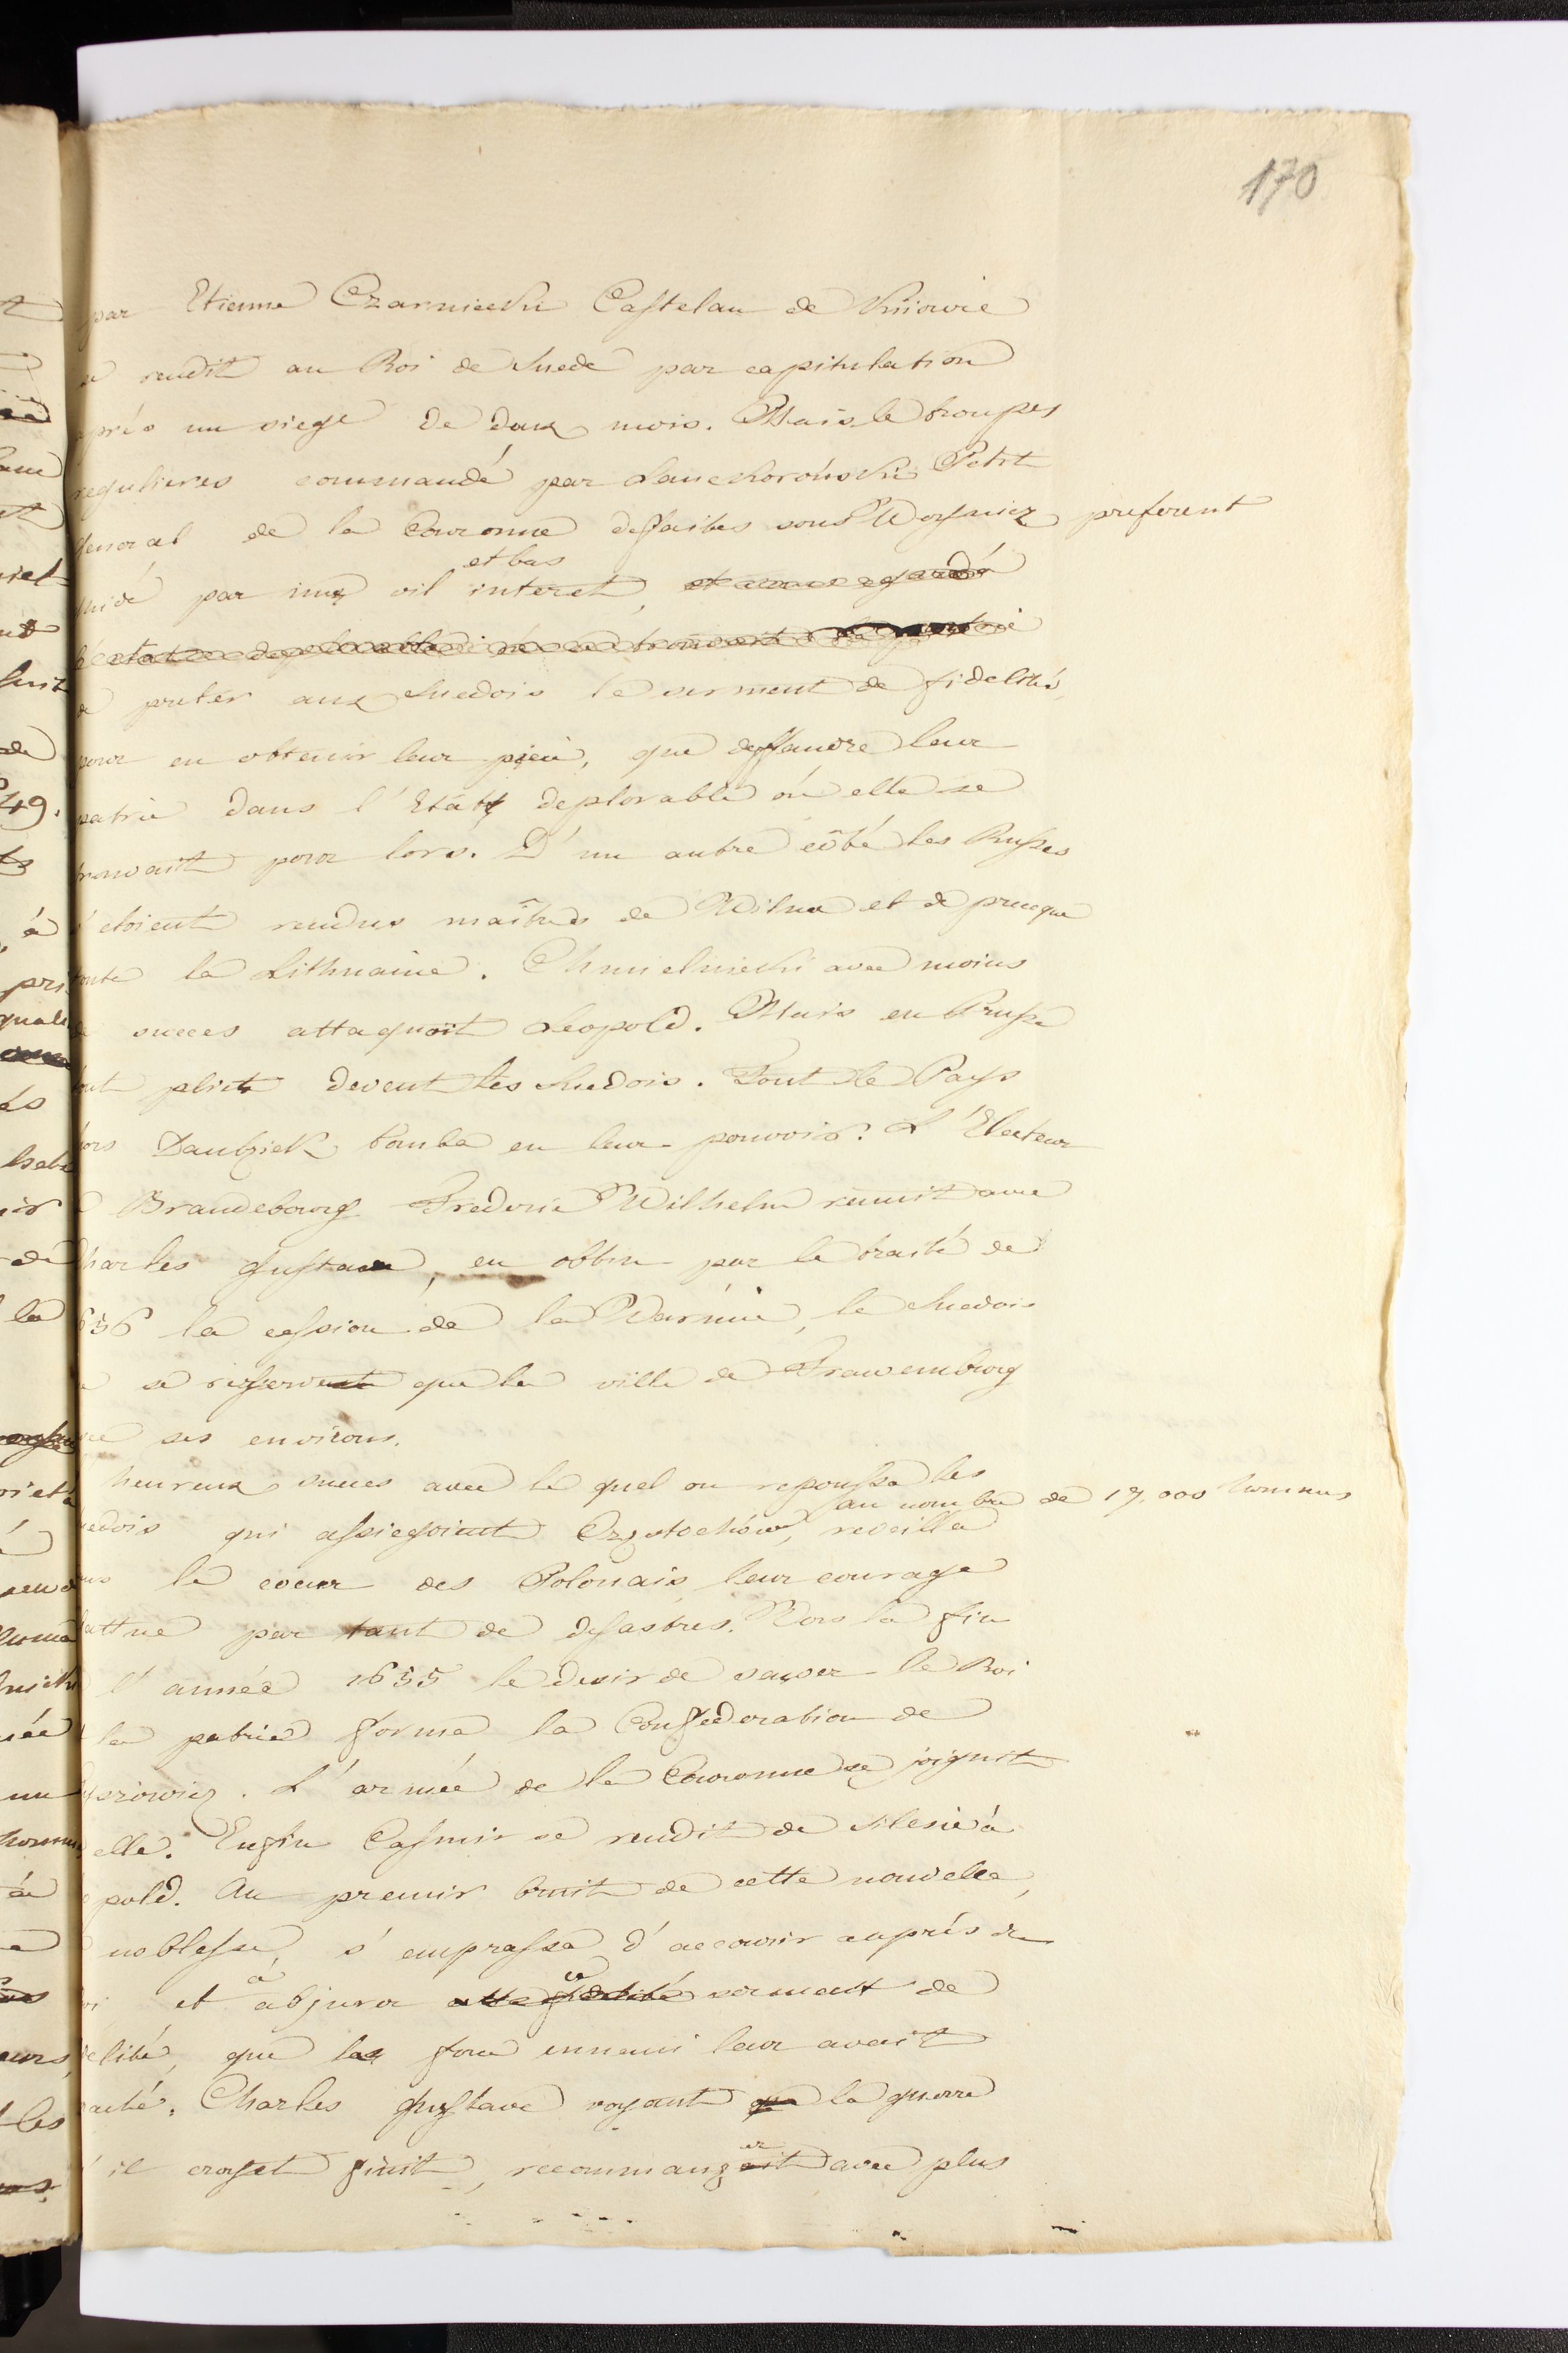 170
par Etienne Czarniecki Castelan de Kiiowie
se rendit au Roi de Suede par capitulation
après un siege de deux mois. Mais le troupes
regulieres commandé par Lanckoroński Petit
General de la Couronne deffaites sous Woyniez preferent
guidé par un vil et bas interet,
de preter aux Suedois le serment de fidelités,
pour en obtenir leur , que deffandre leur
patrie dans l'Etat deplorable óu elle se
trouvait pour lors. D'un autre côté les Russes
s'etoient rendus maîtres de Wilna et de precque
toute la Lithuanie. Chmielniecki avec moins
de succes attaquoit Leopold. Mais en Prusse
tout pliet devent les Suedois. Tout le Pays
hors Dantzick tomba en leur pouvoir. L'Electeur
de Brandebourg Frederic Wilhelm réunit avec
Charles Gustave, en obtin par le traité de
1656 la cession de la Warmie, le Suedois
ne se resserve que la ville de Frawemburg
avec ses environs.
heureux succes avec le quel on repoussa les
Suedois qui assiegoient Częstochów, au nombre de 17,000 hommes reveilla
dans le coeur des Polonais leur courage
battue par tant de desastres. Vers la fin
l'année 1655 le desir de sauver le Roi
et la patrie forma la Confederation de
Tyszowicz. L'armée de la Couronne se joignit
elle. Enfin Casimir se rendit de Silesie à
Leopold. Au premier bruit de cette nouvelle,
la noblesse, s'emprassa d'accourir auprés du
Roi et à abjurer ce serment de
fidelité, que la force ennemi leur avait
Charles Gustave voyant la guerre
qu'il croyet finit, recommanger avec plus